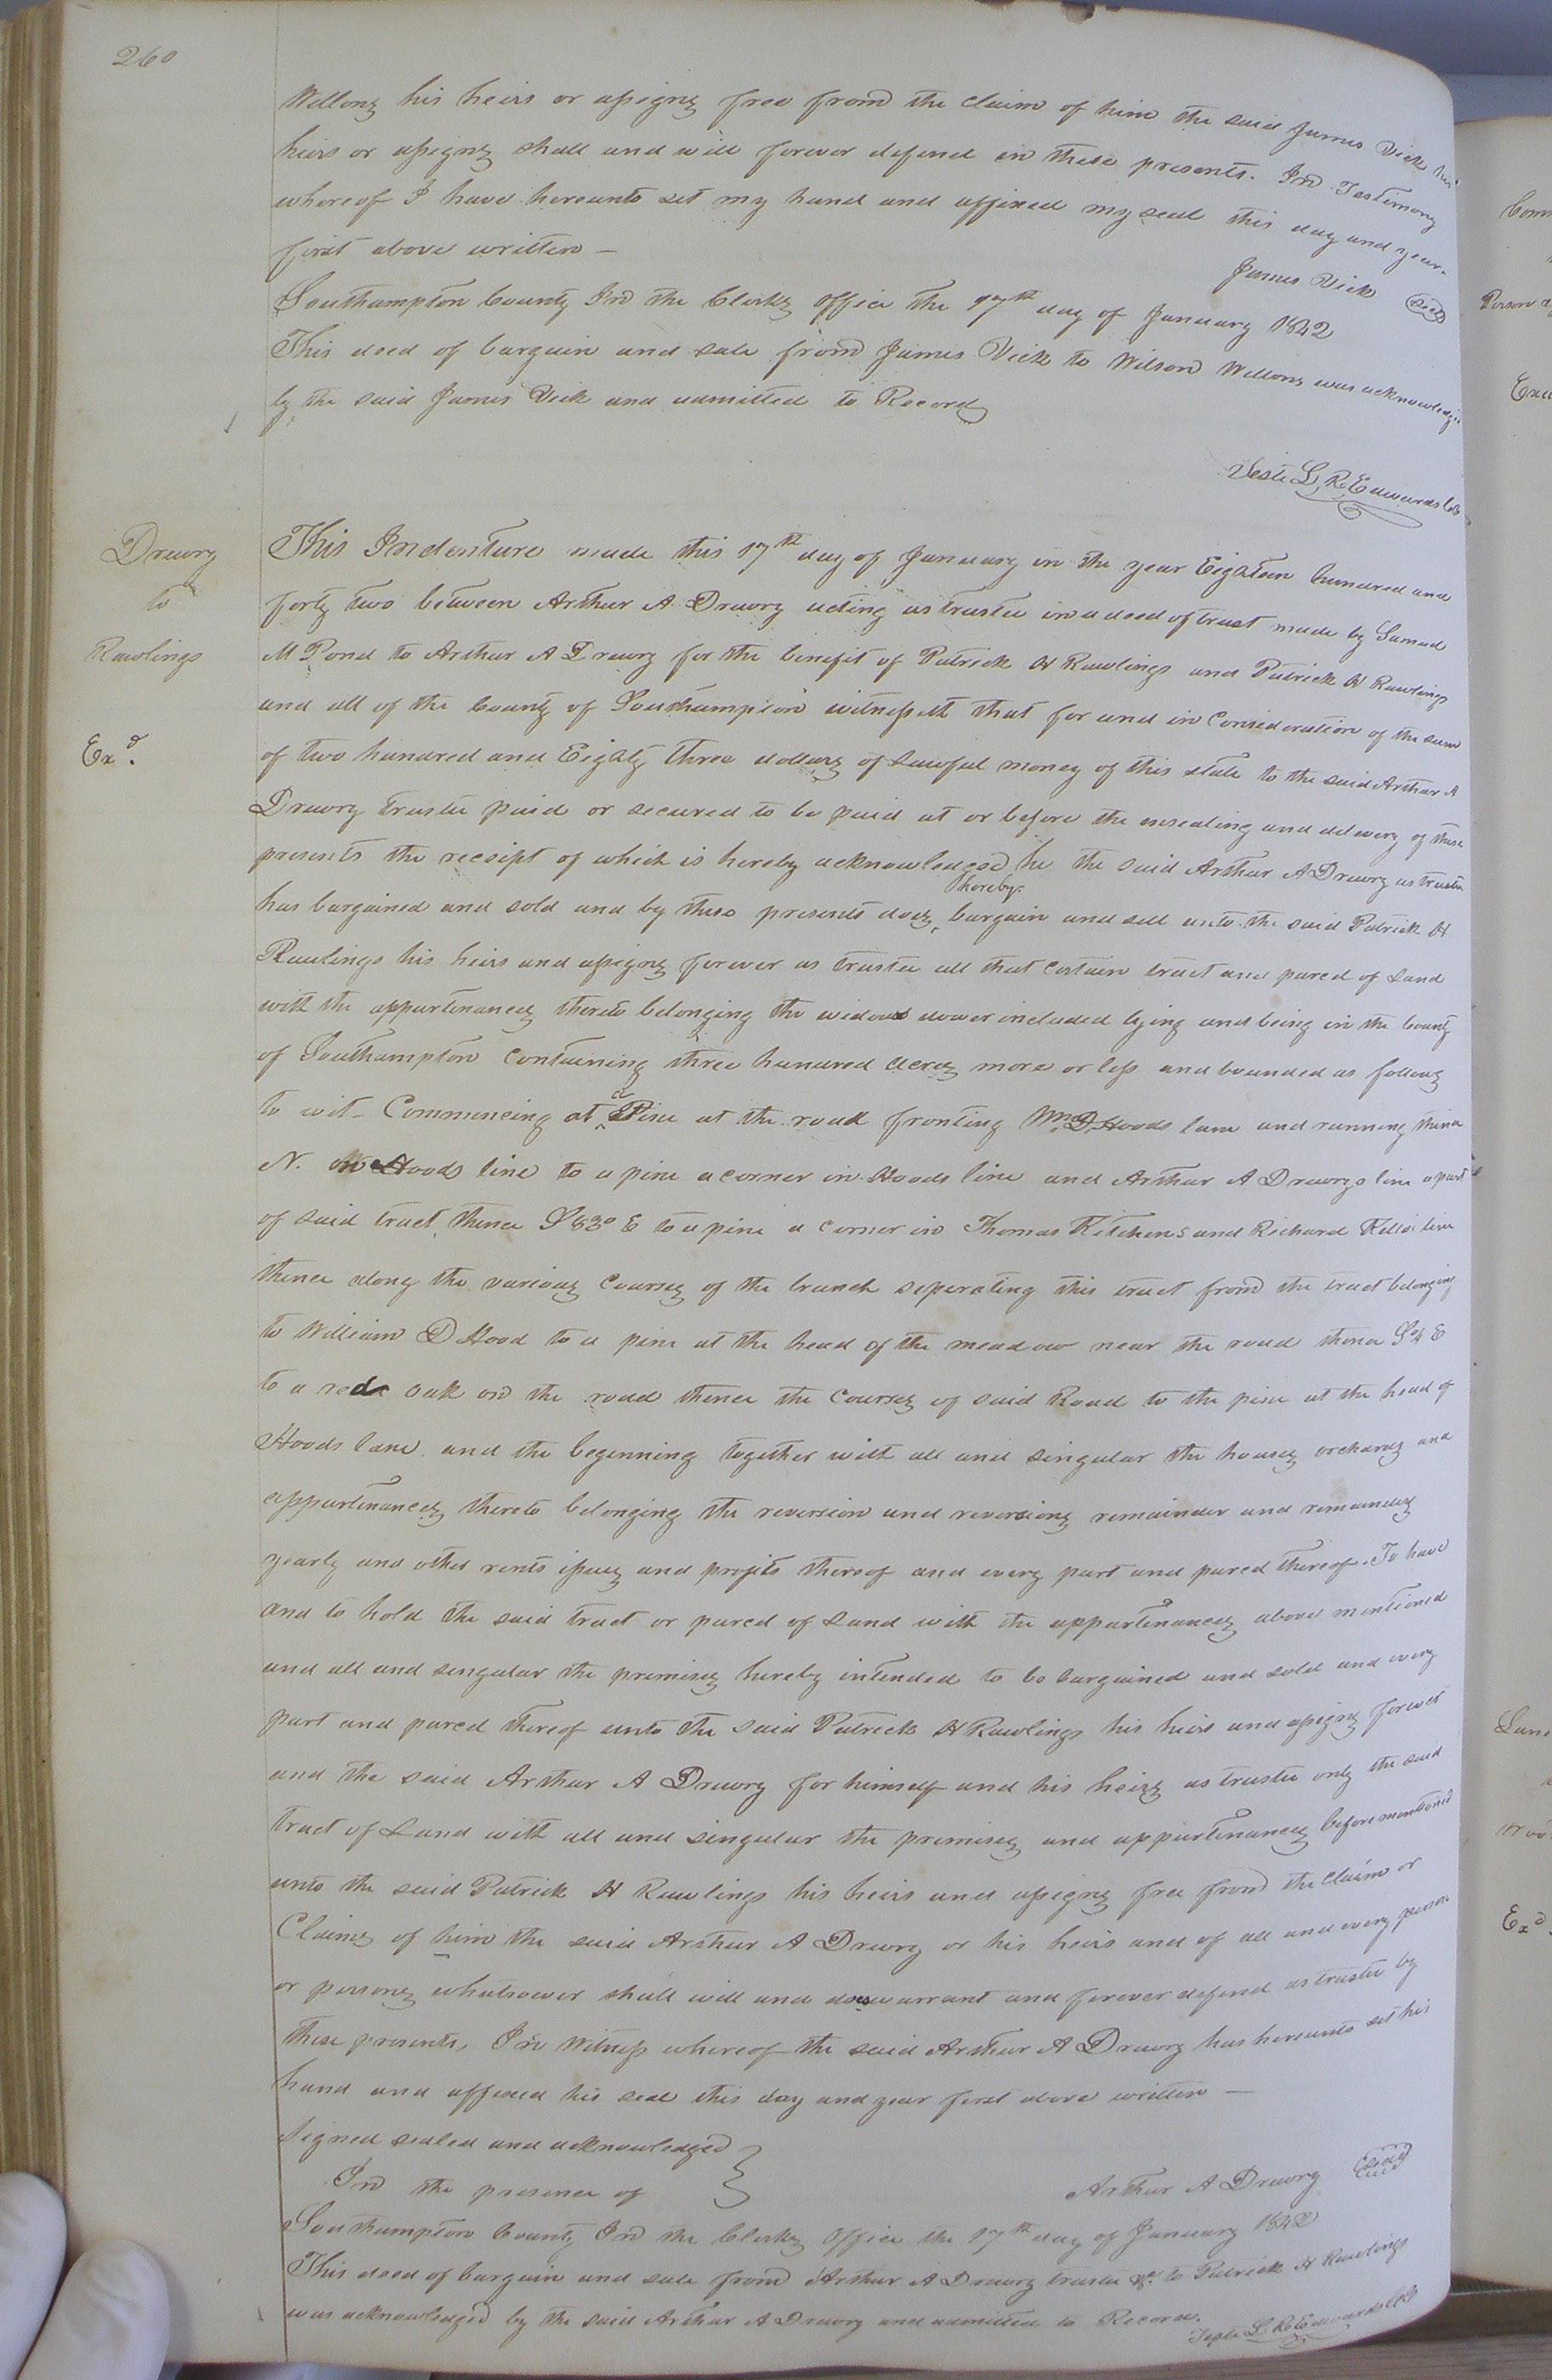 260
Wellons his heirs or assigns free from the claim of him the said James Vick his
heirs or assigns shall and will forever defend in these presents. In Testimony
whereof I have hereunto set my hand and affixed my seal this day and year
first above written —
James Vick Seal
Southampton County In the Clerks office the 17th day of January 1842
This deed of bargain and sale from James Vick to Wilson Wellons was acknowledged
by the said James Vick and admitted to Record
Teste L. R. Edwards
Drewry
to
Rawlings
Exd.
This Indenture made this 17th day of January in the year Eighteen hundred and
forty two between Arthur A Drewry acting as trustee in a deed of trust made by Samuel
M Pond to Arthur A Drewry for the benefit of Patrick H Rawlings and Patrick H Rawlings
and all of the County of Southampton witnesseth that for and in Consideration of the sum
of two hundred and Eighty three dollars of Lawful money of this state to the said Arthur A
Drewry trustee paid or secured to be paid at or before the ensealing and delivery of these
presents the receipt of which is hereby acknowledged he the said Arthur A Drewry as trustee
has bargained and sold and by these presents does hereby bargain and sell unto the said Patrick H
Rawlings his heirs and assigns forever as trustee all that certain tract and parcel of Land
with the appurtenances thereto belonging the widows dower included lying and being in the County
of Southampton Containing three hundred acres more or less and bounded as follows
to wit – Commencing at a Pine at the road fronting Wm D Hoods lane and running thence
N. Hoods line to a pine a corner in Hoods line and Arthur A Drewrys line a part
of said tract, thence S 83° E to a pine a corner in Thomas Kitchens and Richard line
thence along the various Courses of the branch seperating this tract from the tract belonging
to William D Hood to a pine at the head of the meadow near the road thence S 4 E
to a red oak on the road thence the Courses of said Road to the pine at the head of
Hoods lane and the beginning together with all and singular the houses orchards and
appurtenances thereto belonging the reversion and reversions remainder and remainders
yearly and other rents issues and profits thereof and every part and parcel thereof. To have
and to hold the said tract or parcel of Land with the appurtenances above mentioned
and all and singular the premises hereby intended to be bargained and sold and every
part and parcel thereof unto the said Patrick H Rawlings his heirs and assigns forever
and the said Arthur A Drewry for himself and his heirs as trustee only the said
tract of Land with all and singular the premises and appurtenances before mentioned
unto the said Patrick H Rawlings his heirs and assigns free from the claim or
Claims of him the said Arthur A Drewry or his heirs and of all and every person
or persons whatsoever shall will and does warrant and forever defend as trustee by
these presents, In Witness whereof the said Arthur A Drewry has hereunto set his
hand and affixed his seal this day and year first above written —
Signed sealed and acknowledged
In the presence of
Arthur A Drewry Seal
Southampton County In the Clerks Office the 17th day of January 1842
This deed of bargain and sale from Arthur A Drewry trustee &c. to Patrick H Rawlings
was acknowledged by the said Arthur A Drewry and admitted to Record.
Teste L. R. Edwards
Exd.